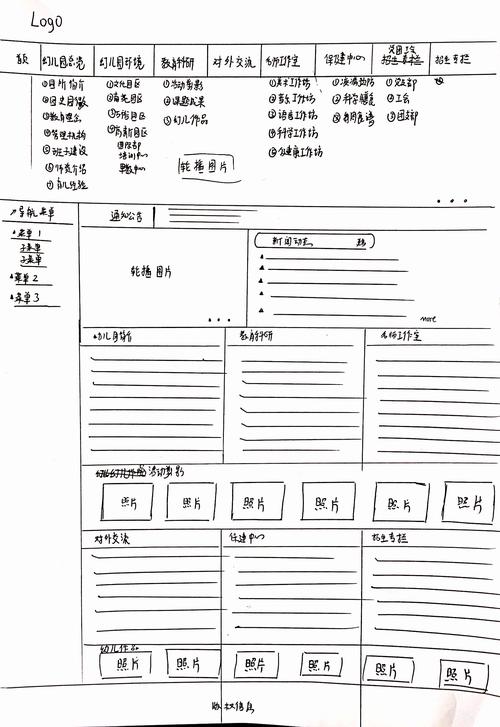 Logo
首页 幼儿园总览 幼儿园环境 教育科研 对外交流 名师工作室 保健中心 党团工会 招生专栏
①园所简介 ①文化园区 ①活动剪影 ①美术工作坊 ①疾病预防 ①党支部
②历史回顾 ②课题成果 ②音乐工作坊 ②科学膳食 ②工会
③教育理念 ③幼儿作品 ③语言工作坊 ③每周食谱 ③团支部
④管理机构 ④科学工作坊
⑤班子建设 ⑤健康工作坊
⑥师资介绍
⑦育儿经验
培训中心
轮播图片
导航菜单
菜单1
子菜单
子菜单
菜单2
菜单3
通知公告
轮播图片
新闻动态
more
教育科研 名师工作室
活动剪影
照片 照片 照片 照片 照片 照片
对外交流 保健中心 招生专栏
幼儿作品
照片 照片 照片 照片 照片 照片
版权信息